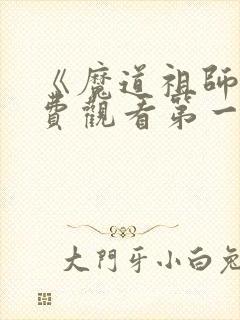 《魔道祖師
費觀看第一
大門牙小白兔